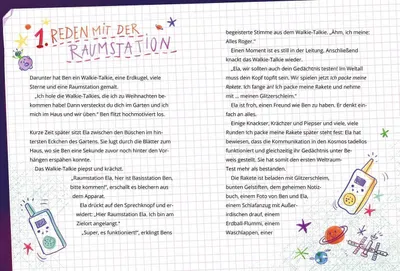 1. REDEN MIT DER
RAUMSTATION
Darunter hat Ben ein Walkie-Talkie, eine Erdkugel, viele
Sterne und eine Raumstation gemalt.
„Ich hole die Walkie-Talkies, die ich zu Weihnachten be-
kommen habe! Dann versteckst du dich im Garten und ich
mich im Haus und wir üben." Ben flitzt hochmotiviert los.
Kurze Zeit später sitzt Ela zwischen den Büschen im hin-
tersten Eckchen des Gartens. Sie lugt durch die Blätter zum
Haus, wo sie Ben eine Sekunde zuvor noch hinter den Vor-
hängen erspähen konnte.
Das Walkie-Talkie piepst und krächzt.
„Raumstation Ela, hier ist Basisstation Ben,
bitte kommen!", erschallt es blechern aus
dem Apparat.
Ela drückt auf den Sprechknopf und er-
widert: „Hier Raumstation Ela. Ich bin am
Zielort angelangt."
„Super, es funktioniert!", erklingt Bens
begeisterte Stimme aus dem Walkie-Talkie. „Ähm, ich meine:
Alles Roger."
Einen Moment ist es still in der Leitung. Anschließend
knackt das Walkie-Talkie wieder.
„Ela, wir sollten auch dein Gedächtnis testen! Im Weltall
muss dein Kopf topfit sein. Wir spielen jetzt Ich packe meine
Rakete. Ich fange an! Ich packe meine Rakete und nehme
mit ... meinen Glitzerschleim."
Ela ist froh, einen Freund wie Ben zu haben. Er denkt ein-
fach an alles.
Einige Knackser, Krächzer und Piepser und viele, viele
Runden Ich packe meine Rakete später steht fest: Ela hat
bewiesen, dass die Kommunikation in den Kosmos tadellos
funktioniert und gleichzeitig ihr Gedächtnis unter Be-
weis gestellt. Sie hat somit den ersten Weltraum-
Test mehr als bestanden.
Die Rakete ist beladen mit Glitzerschleim,
bunten Gelstiften, dem geheimen Notiz-
buch, einem Foto von Ben und Ela,
einem Schlafanzug mit Außer-
irdischen drauf, einem
Erdball-Flummi, einem
Waschlappen, einer